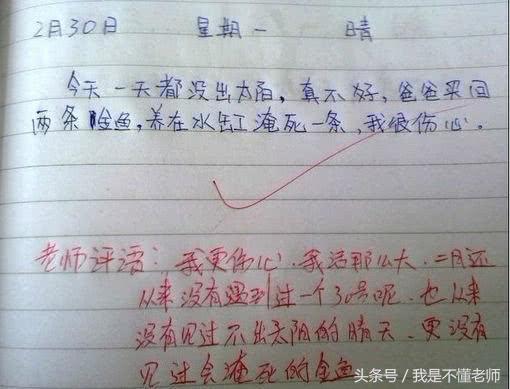 2月30日 星期一 晴
今天一天都没出太阳，真不好，爸爸买回
两条金鱼，养在水缸淹死一条，我很伤心。
老师评语：我更伤心.我活那么大.二月还
从来没有遇到过一个30号呢.也从来
没有见过不出太阳的晴天.更没有
见过会淹死的金鱼
头条号／我是不懂老师